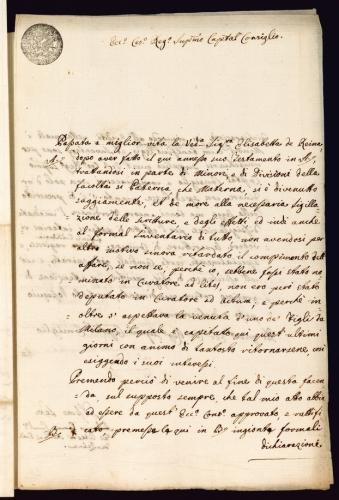 Ecc.º Ces.º Reg.º Supremo Capital Consiglio.
Passata a miglior vita la Ved.ª Sig.ra Elisabetta de Reina
A. dopo aver fatto il qui annesso suo Testamento in A,
trattandosi in parte di Minori, e di Divisione della
facoltà sì Paterna, che Materna, si è divenuto
saggiamente, et de more alla necessaria sigilla
=zione delle scritture, e degli effetti ed indi anche
al formal Inventario di tutto, non avendosi per
altro motivo sinora ritardato il compimento dell'
affare, se non se, perché io, sebbene fossi stato no
minato in Curatore ad lites, non ero però stato
deputato in Curatore ad actum; e perché in
=oltre s'aspettava la venuta d'uno de' Figli da
Milano, il quale è capitato qui quest'ultimi
giorni con animo di tantosto ritornarsene, così
esiggendo i suoi interessi.
Premendo perciò di venire al fine di questa facen
=da, sul supposto sempre, che tal mio atto abbia
ad essere da quest'Ecc.º Cons.º approvato e ratifi
B. =cato premessa la qui in B.º ingionta formale
dichiarazione